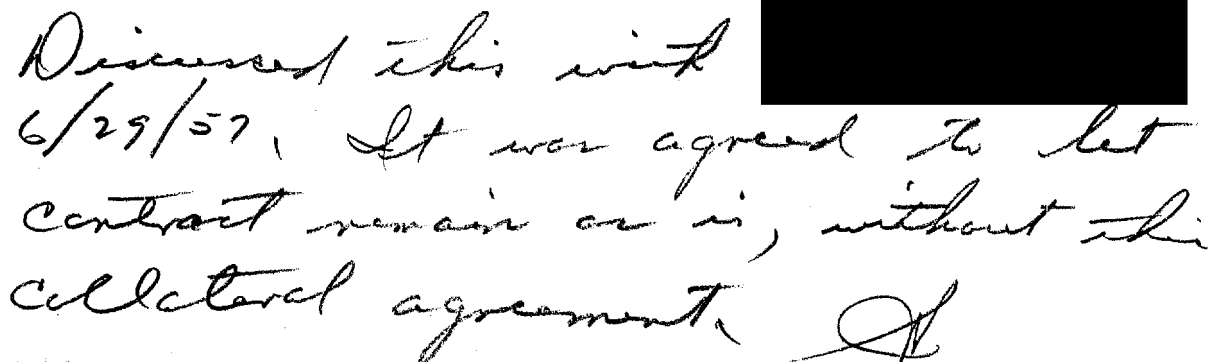 Discussed this with
6/29/57. It was agreed to let
contract remain as is, without this
collateral agreement.